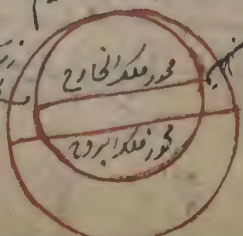 محور فلک الخارج
محور فلک البروج